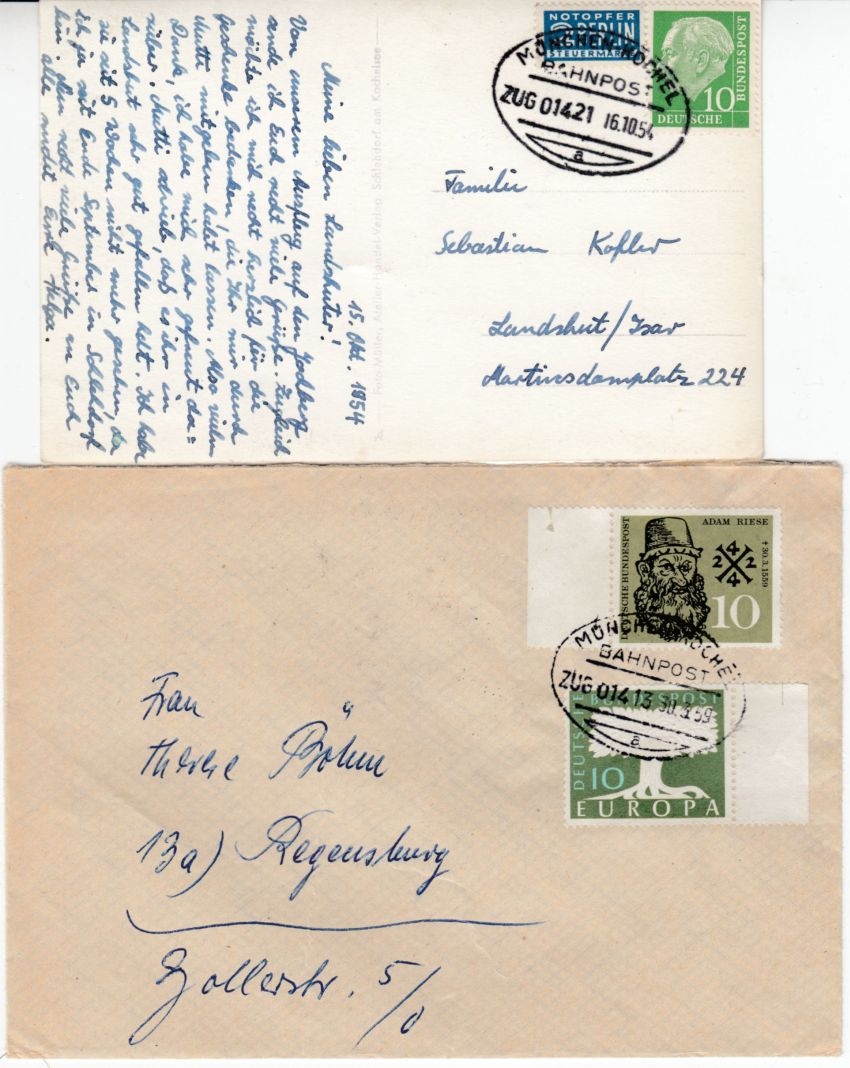 NOTOPFER
2 BERLIN
STEUERMARKE
DEUTSCHE
BUNDESPOST
10
MÜNCHEN-KOCHEL
BAHNPOST
ZUG 01421 16.10.54
a
Familie
Sebastian Kofler
Landshut/Isar
Martinsdomplatz 224
Foto Müller, Atelier-Handel-Verlag Schlehdorf am Kochelsee
15. Okt. 1954
Meine lieben Landshuter!
Von unserem Ausflug auf den Jochberg
sende ich Euch recht viele Grüße. Zugleich
möchte ich mich recht herzlich für die
Geschenke bedanken, die Ihr mir durch
Mutti mitgeben habt lassen. Also vielen
Dank, ich habe mich sehr gefreut da=
rüber. Mutti schrieb, daß es ihr in
Landshut sehr gut gefallen hat. Ich habe
sie seit 5 Wochen nicht mehr gesehen, da
ich ja seit Ende September in Schlehdorf
bin. Nun recht viele Grüße an Euch
alle sendet Eure Helga.
DEUTSCHE BUNDESPOST
ADAM RIESE
† 30.3.1559
4
2 2
4
10
MÜNCHEN-KOCHEL
BAHNPOST
ZUG 01413 30.3.59
a
DEUTSCHE BUNDESPOST
10
EUROPA
Frau
Therese Böhm
13a) Regensburg
Zollerstr. 5/0